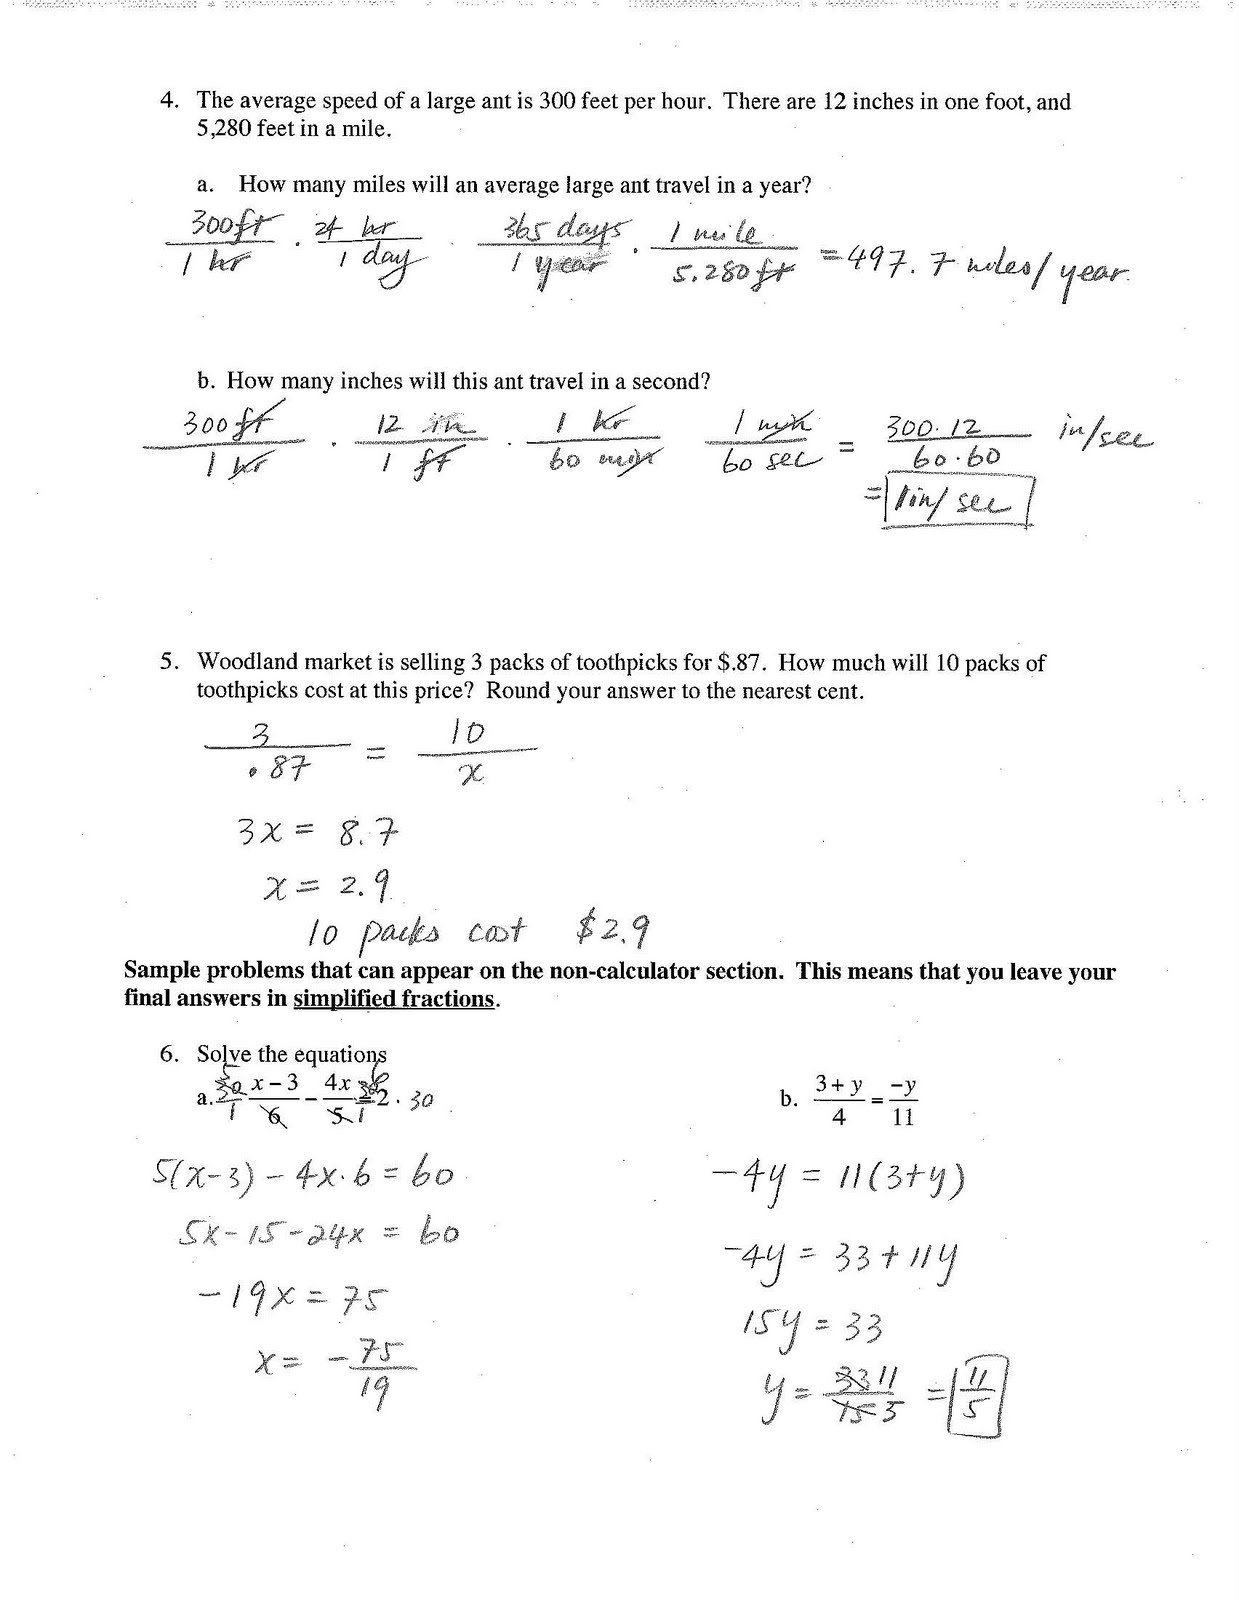 4. The average speed of a large ant is 300 feet per hour. There are 12 inches in one foot, and
5,280 feet in a mile.
a. How many miles will an average large ant travel in a year?
300ft/1 hr · 24 hr/1 day · 365 days/1 year · 1 mile/5.280ft = 497.7 miles/year.
b. How many inches will this ant travel in a second?
300 ft/1 hr · 12 in/1 ft · 1 hr/60 min 1 min/60 sec = 300·12/60·60 in/sec
= 1in/sec
5. Woodland market is selling 3 packs of toothpicks for $.87. How much will 10 packs of
toothpicks cost at this price? Round your answer to the nearest cent.
3/.87 = 10/x
3x = 8.7
x = 2.9
10 packs cost $2.9
Sample problems that can appear on the non-calculator section. This means that you leave your
final answers in simplified fractions.
6. Solve the equations
a. 30/1 x – 3/6 – 4x/5 = 2 · 30
5(x-3) - 4x·6 = 60
5x-15-24x = 60
-19x = 75
x = -75/19
b. 3 + y/4 = –y/11
-4y = 11(3+y)
-4y = 33+11y
15y = 33
y = 33 11/15 5 = 11/5